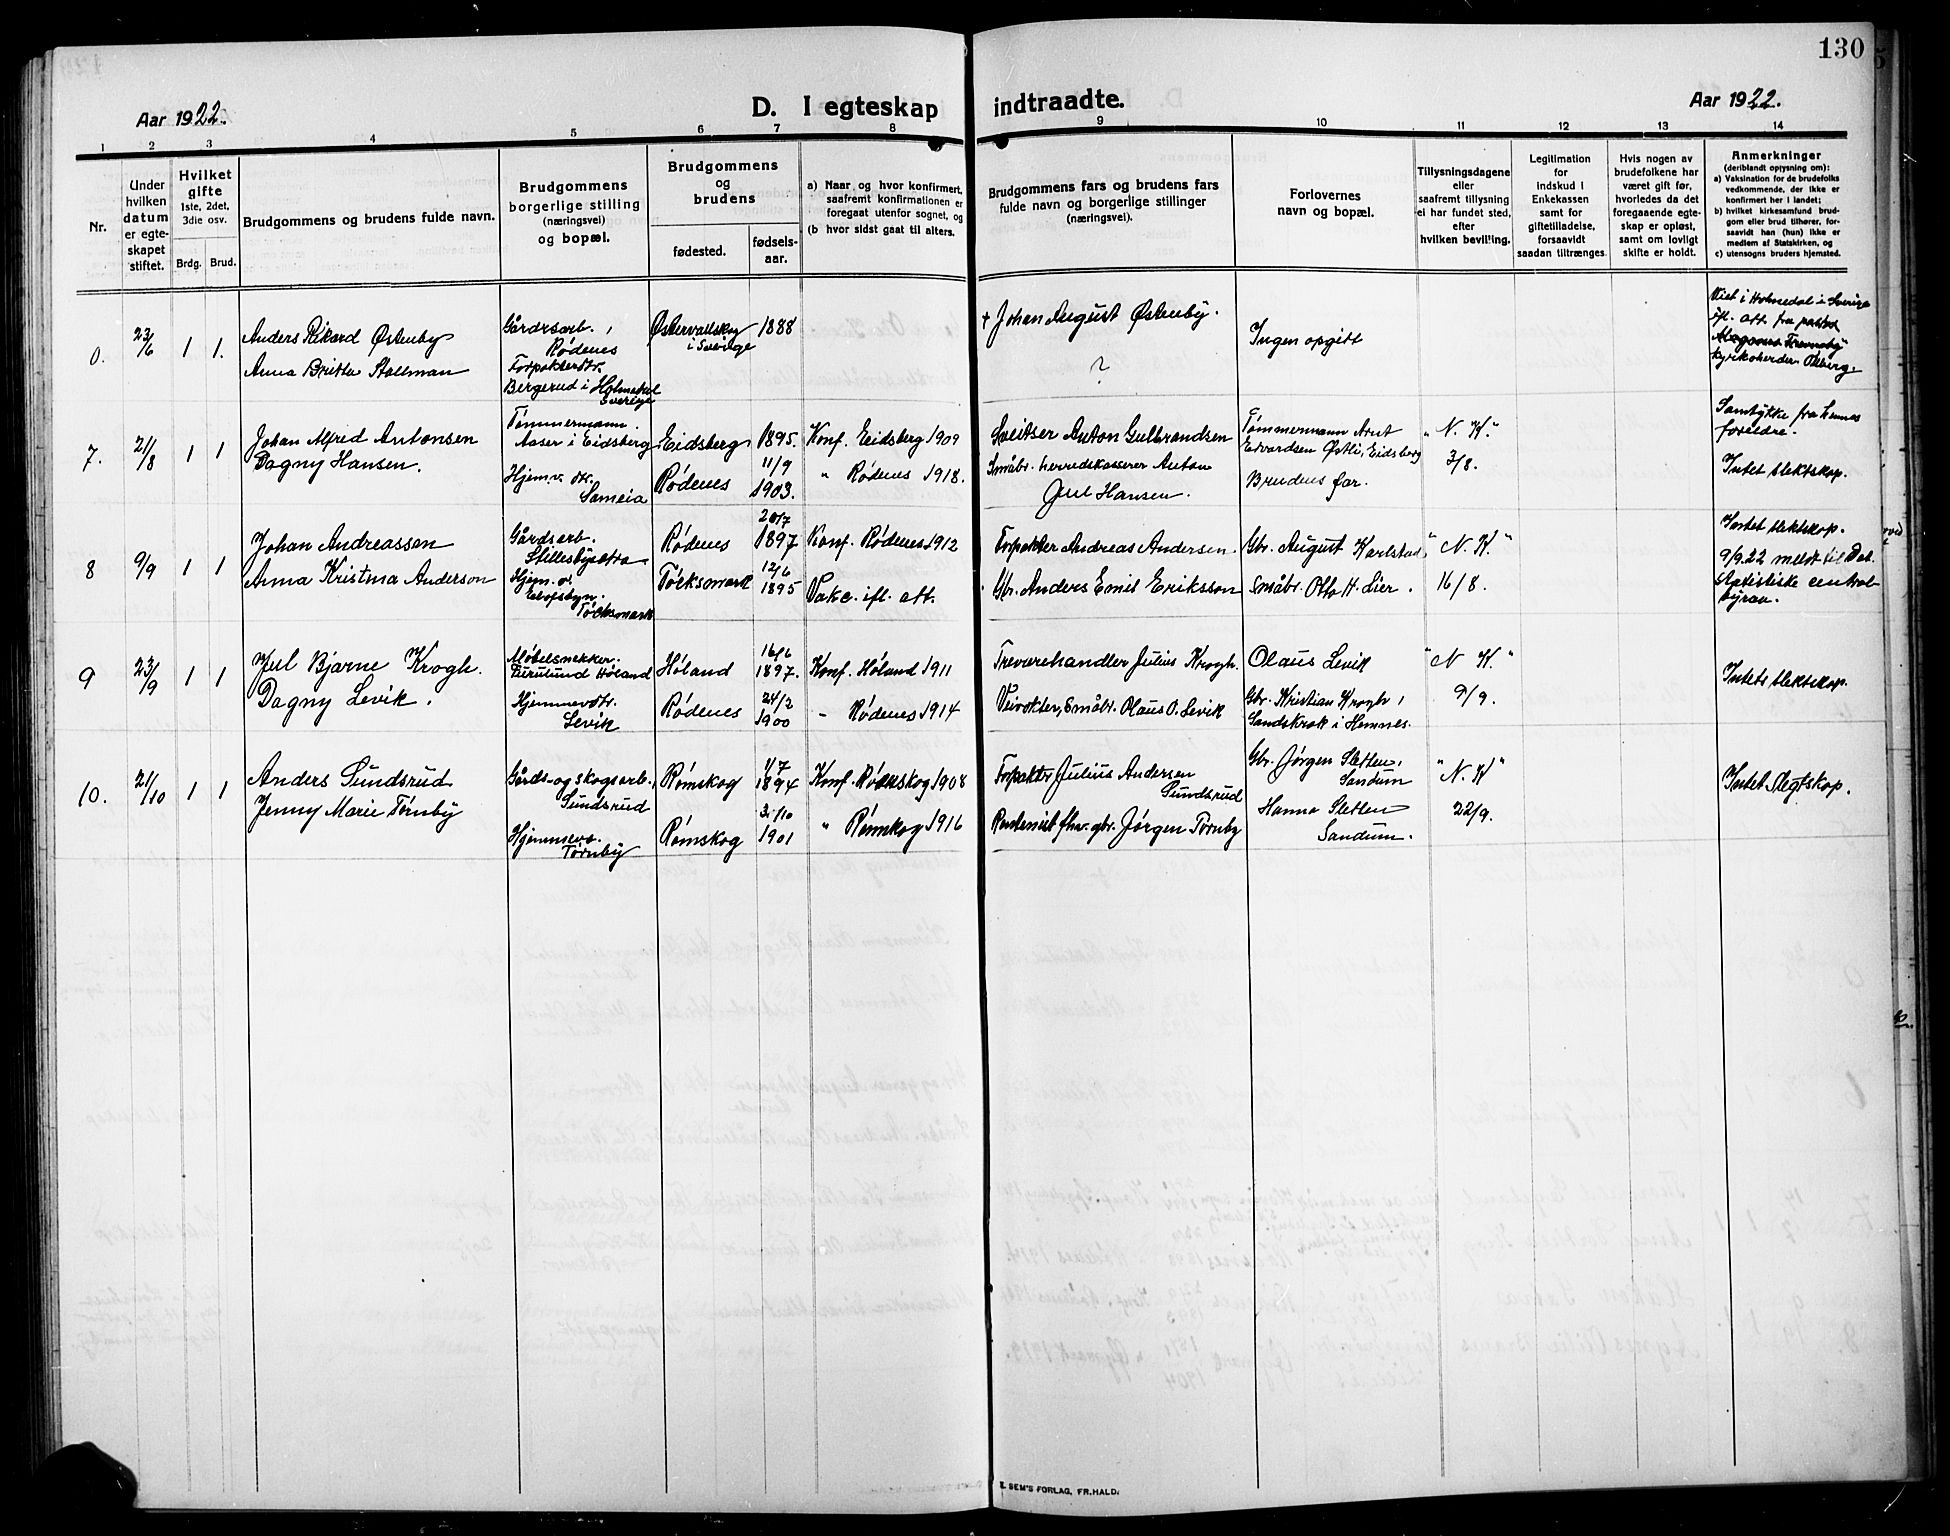 130
Aar 1922.
D. I egteskap indtraadte.
Aar 1922.
1 2 3 4 5 6 7 8 9 10 11 12 13 14
Nr.
Under hvilken datum er egteskapet stiftet.
Hvilket gifte
1ste, 2det, 3die osv.
Brdg. Brud.
Brudgommens og brudens fulde navn.
Brudgommens borgerlige stilling (næringsvei) og bopæl.
Brudgommens og brudens
fødested. fødselsaar.
a) Naar og hvor konfirmert, saafremt konfirmationen er foregaat utenfor sognet, og
(b hvor sidst gaat til alters.
Brudgommens fars og brudens fars fulde navn og borgerlige stillinger (næringsvei).
Forlovernes navn og bopæl.
Tillysningsdagene eller saafremt tillysning ei har fundet sted, efter hvilken bevilling.
Legitimation for indskud i Enkekassen samt for giftetilladelse, forsaavidt saadan tiltrænges.
Hvis nogen av brudefolkene har været gift før, hvorledes da det foregaaende egteskap er opløst, samt om lovligt skifte er holdt.
Anmerkninger
(deriblandt opjysning om):
a) Vaksination for de brudefolks vedkommende, der ikke er konfirmert her i landet;
b) hvilket kirkesamfund brudgom eller brud tilhører, forsaavidt han (hun) ikke er medlem av Statskirken, og
c) utensogns bruders hjemsted.
0. 23/6 1 1.
Anders Rikard Østenby
Anna Britta Stallman
Gårdsarb.,
Rødenes
Forpakterdtr.
Bergerud i Holmedal
Sverige
Østervallskog
i Sverige
1888
+ Johan August Østenby.
?
Ingen opgitt
Viet i Holmedal i Sverige
ifl. att. fra pastor
kyrkoherden
7. 21/8 1 1
Johan Alfred Antonsen
Dagny Hansen.
Tømmermann.
Aaser i Eidsberg
Hjemv. dtr.
Sameia
Eidsberg 1895.
Rødenes 11/9 1903.
Konf. Eidsberg 1909
" Rødenes 1918.
Sveitser Anton Gulbrandsen
Småbr. herredskasserer Anton
Juul Hansen.
Tømmermann Arnt
Edvardsen Østli, Eidsberg
Brudens far.
" N. K."
3/8.
Samtykke fra hennes
foreldre.
Intet slektskap.
8 9/9 1 1
Johan Andreassen
Anna Kristina Anderson
Gårdsarb.
Stillesbyestra
Hjem. d.
Elofsbyn.
Töcksmark
Rødenes 20/7 1897
Töcksmark 12/6 1895
Konf. Rødenes 1912
Vakc. ifl. att.
Forpakter Andreas Andersen.
Gbr. Anders Emil Eriksson
Gbr. August Karlstad
Småbr. Otto H. Lier.
" N. K. "
16/8.
Intet slektskap.
9/9.22 meldt til Det
statistiske central
byraa.
9 23/9 1 1
Jul Bjarne Krogh.
Dagny Levik.
Møbelsnekker.
Høland
Hjemmevdtr.
Levik
Høland 16/6 1897.
Rødenes 24/2 1900
Konf. Høland 1911
" Rødenes 1914
Trævarehandler Julius Krogh.
Veivokter, Småbr. Olaus O. Levik
Olaus Levik
Gbr. Kristian Krogh,
Sandskrok i Hemnes.
" N K. "
9/9.
Intet slektskap.
10. 21/10 1 1
Anders Sundsrud
Jenny Marie Tørnby
Gårds- og skogsarb.
Sundsrud
Hjemmev.
Tørnby
Rømskog 1/7 1894
Rømskog 3/10 1901
Konf. Rømskog 1908
" Rømskog 1916
Forpakter Julius Andersen
Sundsrud
Rentenist fhv. gbr. Jørgen Tørnby
Gbr. Jørgen Sletten,
Sandum
Hanna Sletten
Sandum.
" N. K "
22/9.
Intet Slegtskap.
E. SEM'S FORLAG, FR.HALD.